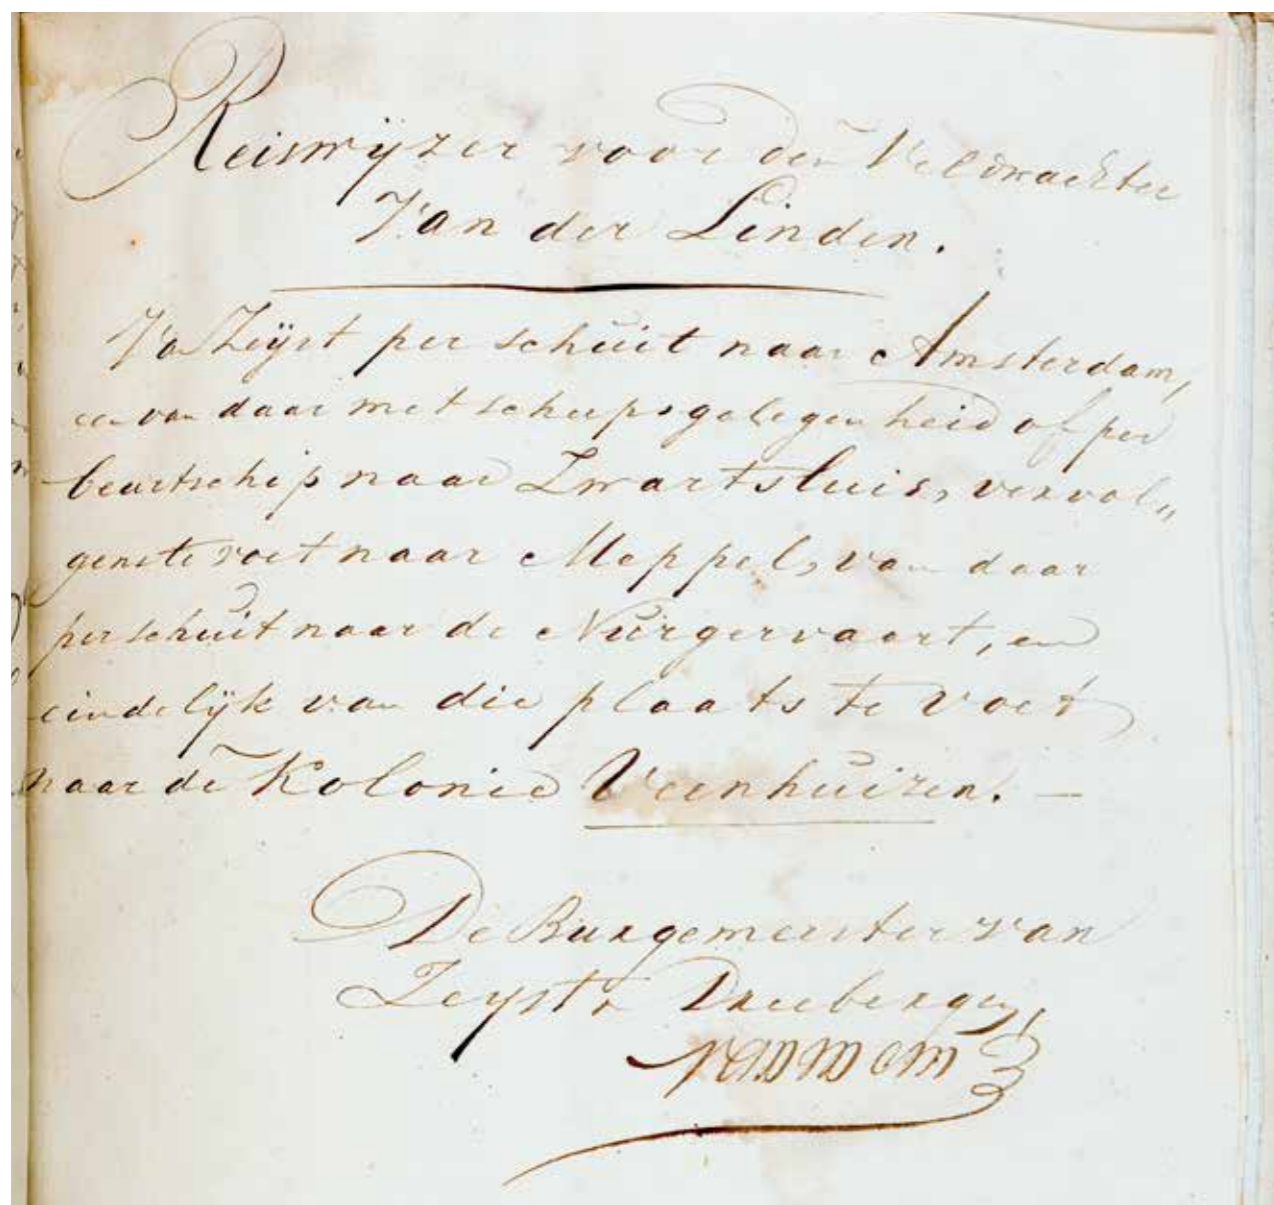 Reiswijzer voor den Veldwachter
Van der Linden.
Van Zeijst per schuit naar Amsterdam,
en van daar met scheepsgelegenheid of per
beurtschip naar Zwartsluis, vervol„
gens te voet naar Meppel, van daar
per schuit naar de Nurgervaart, en
eindelijk van die plaats te voet
naar de Kolonie Veenhuizen. —
De Burgemeester van
Zeyst en Driebergen,